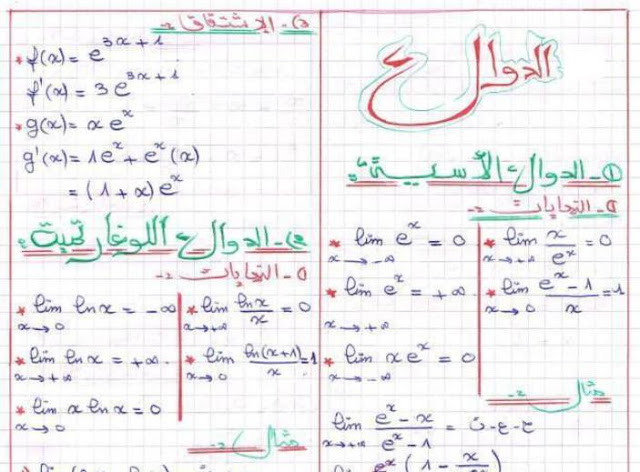 الدوال ع
① - الدوال الأسية :
① - النهايات :
* lim e^x = 0
x → -∞
* lim x/e^x = 0
x → +∞
* lim e^x = +∞
x → +∞
* lim (e^x - 1)/x = 1
x → 0
* lim x e^x = 0
x → -∞
مثال :
lim (e^x - x)/(e^x - 1) = ح - ع - ت
x → +∞
e^x (1 - x/e^x)
- الإشتقاق :
* f(x) = e^{3x + 1}
f'(x) = 3 e^{3x + 1}
* g(x) = x e^x
g'(x) = 1e^x + e^x (x)
= (1 + x) e^x
2 - الدوال اللوغارتمية :
① - النهايات :
* lim ln x = -∞
x → 0
* lim ln x / x = 0
x → +∞
* lim ln x = +∞
x → +∞
* lim ln(x+1)/x = 1
x → 0
* lim x ln x = 0
x → 0
مثال :